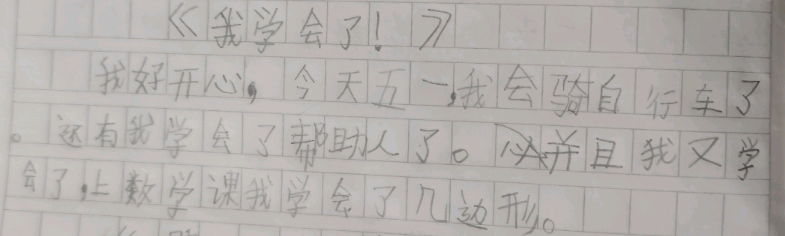 《我学会了！》
我好开心，今天五一，我会骑自行车了
。还有我学会了帮助人了。并且我又学
会了，上数学课我学会了几边形。